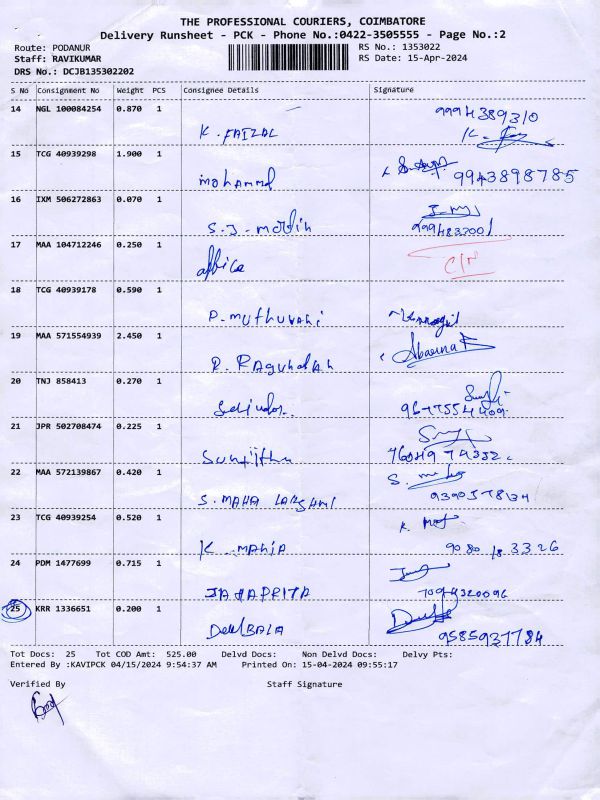 THE PROFESSIONAL COURIERS, COIMBATORE
Delivery Runsheet - PCK - Phone No.:0422-3505555 - Page No.:2
Route: PODANUR RS No.: 1353022
Staff: RAVIKUMAR RS Date: 15-Apr-2024
DRS No.: DCJB135302202
S No Consignment No Weight PCS Consignee Details Signature
14 NGL 100084254 0.870 1
9994389310
K. FAIZAL
15 TCG 40939298 1.900 1
mohammd 9943898785
16 IXM 506272863 0.070 1
S.J.
17 MAA 104712246 0.250 1
office
18 TCG 40939178 0.590 1
P. muthuvani
19 MAA 571554939 2.450 1
R.
20 TNJ 858413 0.270 1
21 JPR 502708474 0.225 1
22 MAA 572139867 0.420 1
S. MAHA
23 TCG 40939254 0.520 1
K.
9080183326
24 PDM 1477699 0.715 1
25 KRR 1336651 0.200 1
9585937784
Tot Docs: 25 Tot COD Amt: 525.00 Delvd Docs: Non Delvd Docs: Delvy Pts:
Entered By :KAVIPCK 04/15/2024 9:54:37 AM Printed On: 15-04-2024 09:55:17
Verified By Staff Signature